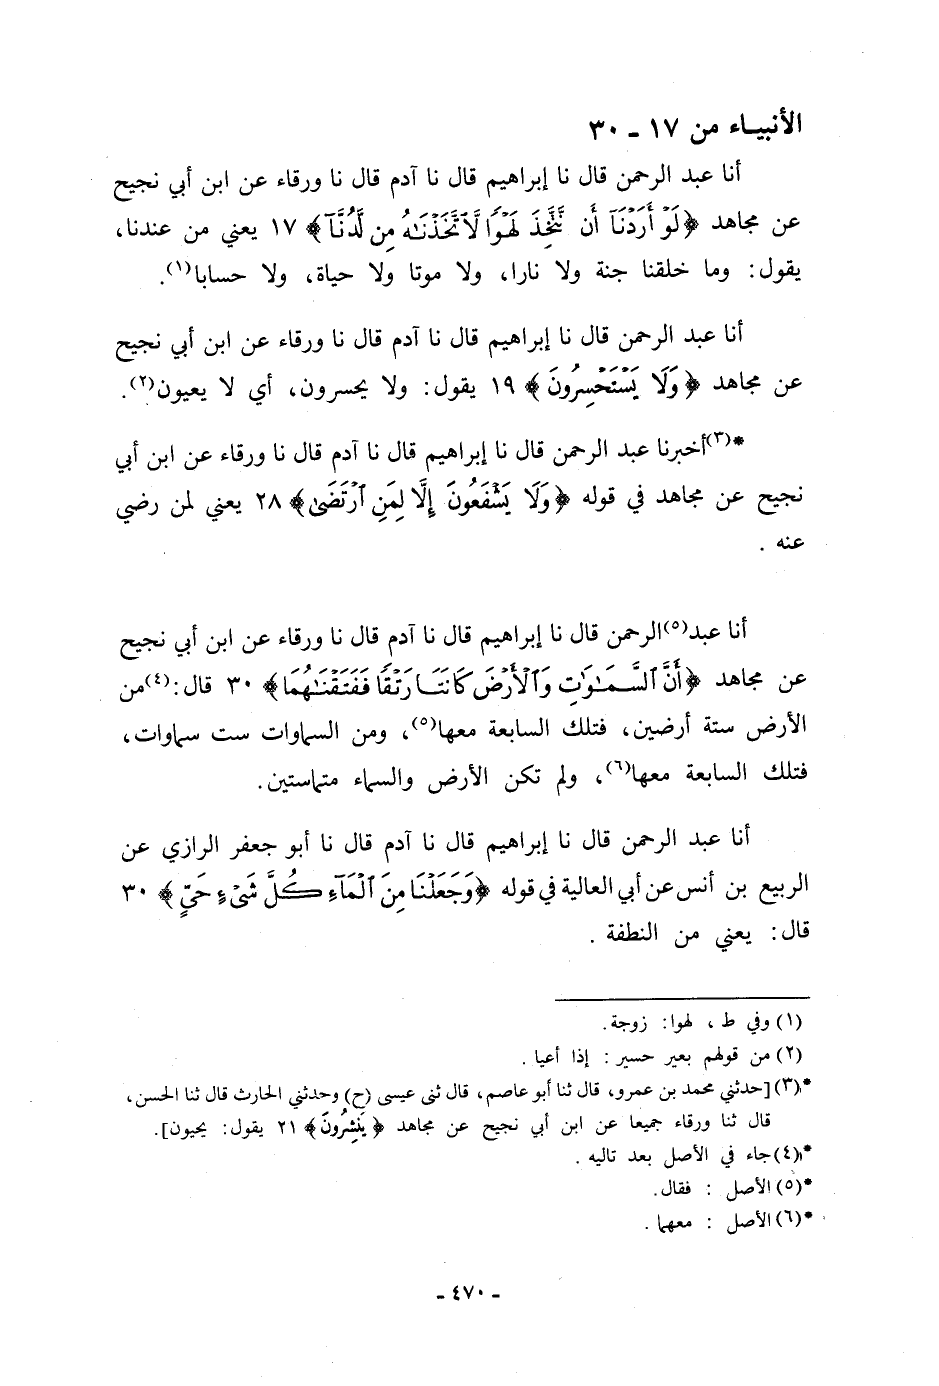 الأنبياء من ١٧ ـ ٣٠
أنا عبد الرحمن قال نا إبراهيم قال نا آدم قال نا ورقاء عن ابن أبي نجيح
عن مجاهد ﴿لَوْ أَرَدْنَآ أَن نَّتَّخِذَ لَهْوًا لَّاتَّخَذْنَٰهُ مِن لَّدُنَّآ﴾ ١٧ يعني من عندنا،
يقول: وما خلقنا جنة ولا نارا، ولا موتا ولا حياة، ولا حسابا(١).
أنا عبد الرحمن قال نا إبراهيم قال نا آدم قال نا ورقاء عن ابن أبي نجيح
عن مجاهد ﴿وَلَا يَسْتَحْسِرُونَ﴾ ١٩ يقول: ولا يحسرون، أي لا يعيون(٢).
*(٣)أخبرنا عبد الرحمن قال نا إبراهيم قال نا آدم قال نا ورقاء عن ابن أبي
نجيح عن مجاهد في قوله ﴿وَلَا يَشْفَعُونَ إِلَّا لِمَنِ ٱرْتَضَىٰ﴾ ٢٨ يعني لمن رضي
عنه .
أنا عبد(٥)الرحمن قال نا إبراهيم قال نا آدم قال نا ورقاء عن ابن أبي نجيح
عن مجاهد ﴿أَنَّ ٱلسَّمَٰوَٰتِ وَٱلْأَرْضَ كَانَتَا رَتْقًا فَفَتَقْنَٰهُمَا﴾ ٣٠ قال:(٤)من
الأرض ستة أرضين، فتلك السابعة معها(٥)، ومن السماوات ست سماوات،
فتلك السابعة معها(٦)، ولم تكن الأرض والسماء متماستين.
أنا عبد الرحمن قال نا إبراهيم قال نا آدم قال نا أبو جعفر الرازي عن
الربيع بن أنس عن أبي العالية في قوله ﴿وَجَعَلْنَا مِنَ ٱلْمَآءِ كُلَّ شَىْءٍ حَيٍّ﴾ ٣٠
قال: يعني من النطفة .
(١) وفي ط ، لهوا: زوجة.
(٢) من قولهم بعير حسير: إذا أعيا .
*(٣) [حدثني محمد بن عمرو، قال ثنا أبو عاصم، قال ثنى عيسى (ح) وحدثني الحارث قال ثنا الحسن،
قال ثنا ورقاء جميعا عن ابن أبي نجيح عن مجاهد ﴿يَنشِرُونَ﴾ ٢١ يقول: يحيون].
*(٤)جاء في الأصل بعد تاليه .
*(٥) الأصل : فقال.
*(٦) الأصل : معهما .
ـ ٤٧٠ ـ